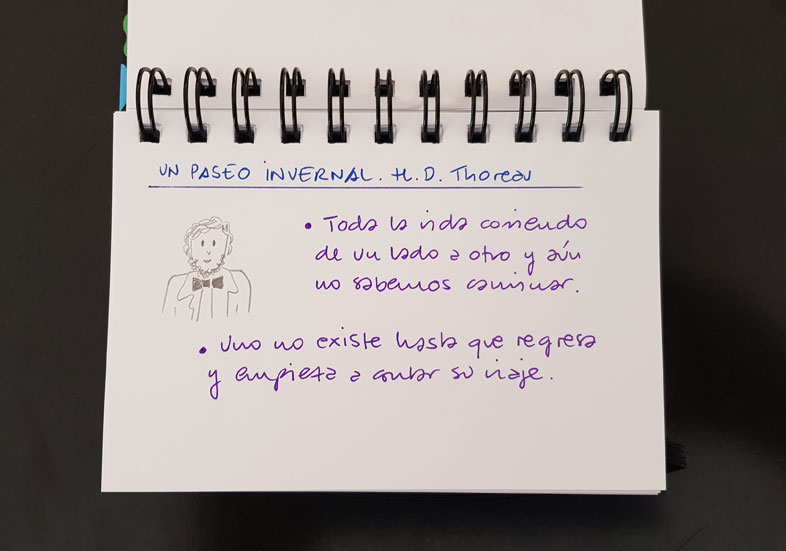 UN PASEO INVERNAL. H. D. Thoreau
• Toda la vida corriendo
de un lado a otro y aún
no sabemos caminar.
• Uno no existe hasta que regresa
y empieza a contar su viaje.